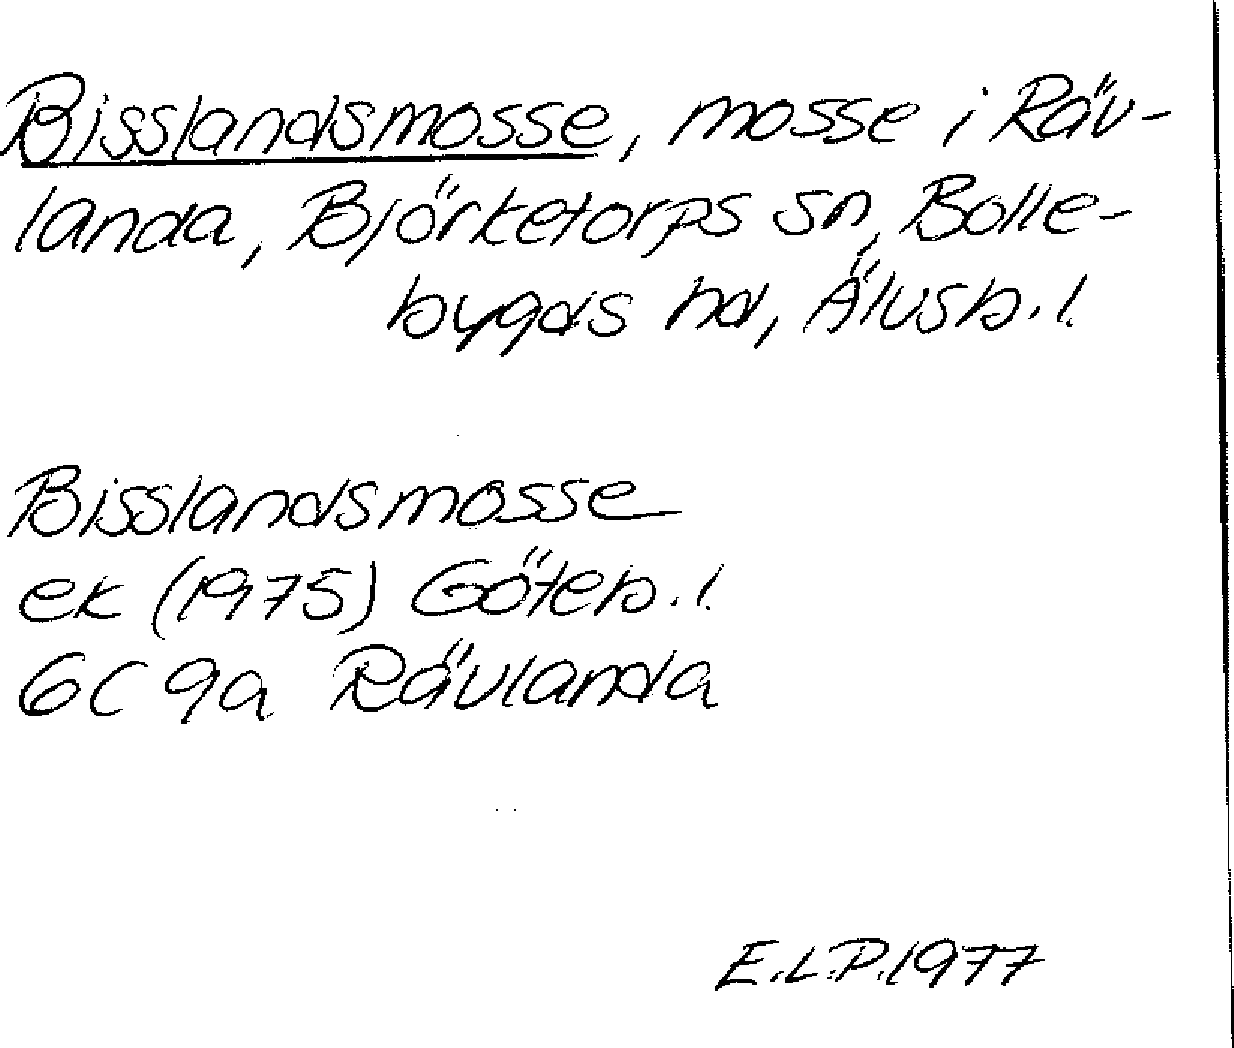 Bisslandsmosse, mosse i Räv-
landa, Björketorps sn, Bolle-
bygds hd, Älvsb. l.
Bisslandsmosse
ek (1975) Göteb. l.
6C 9a Rävlanda
E.L.P. 1977